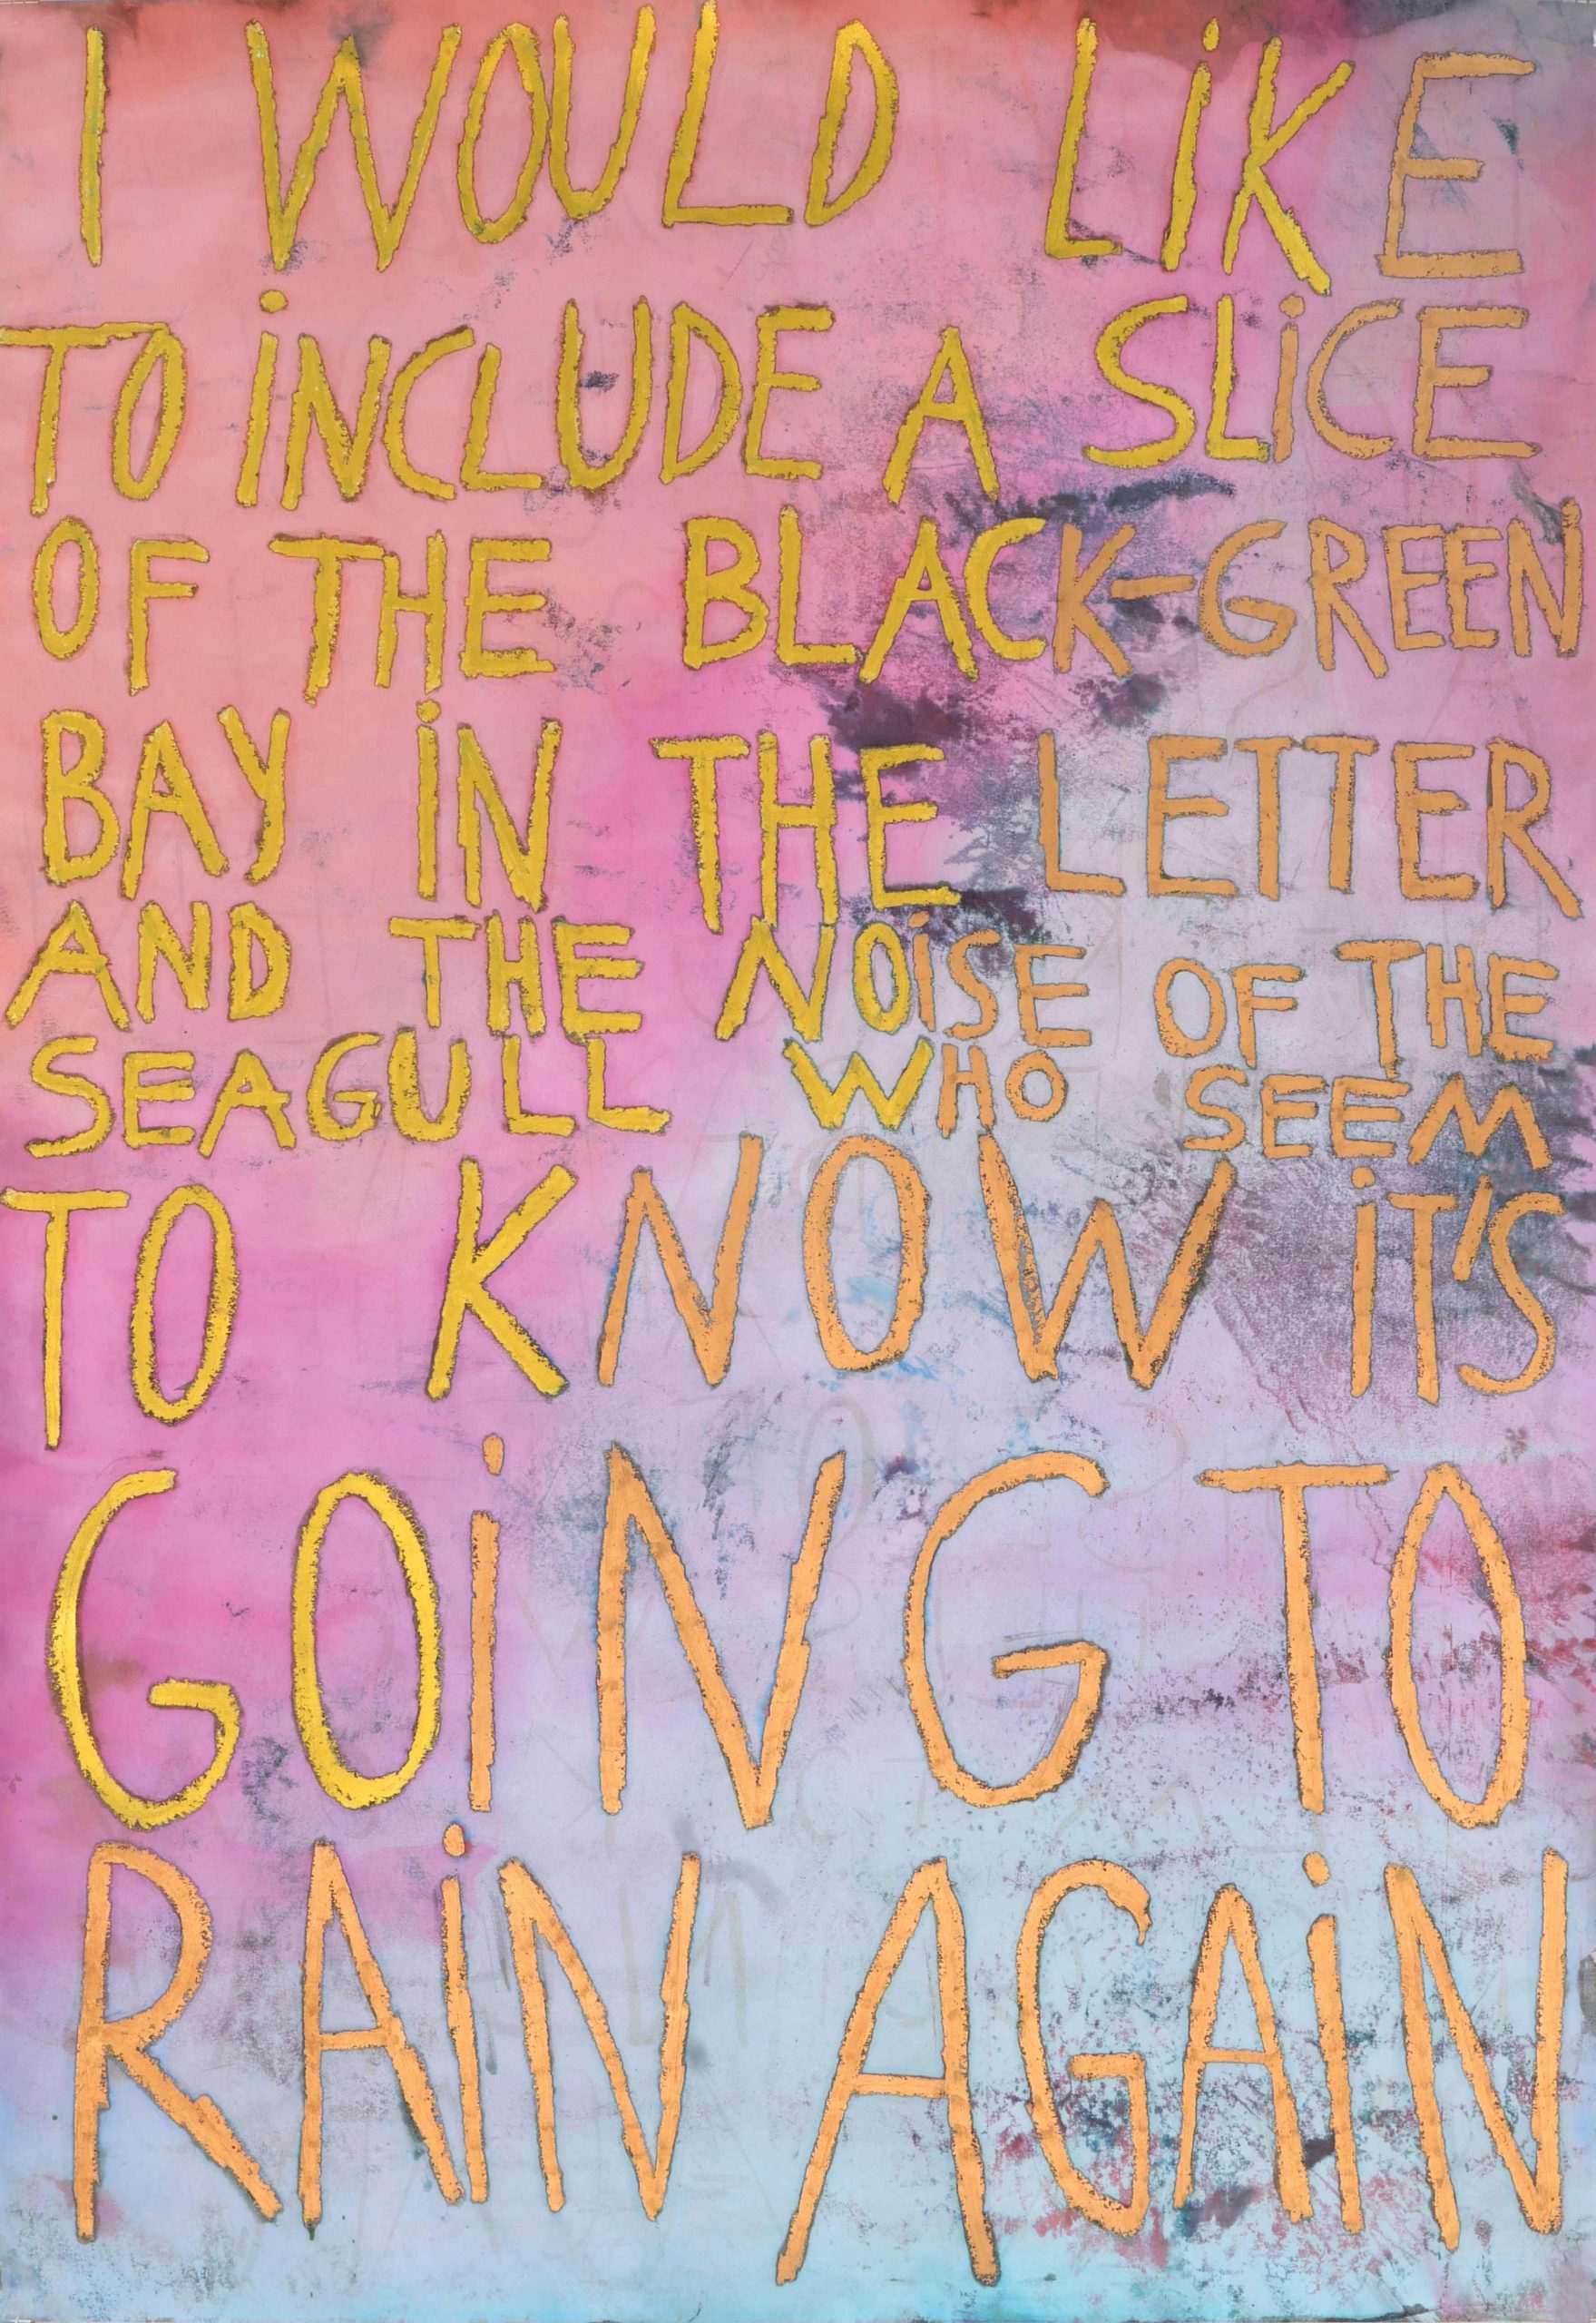 I WOULD LiKE
TO iNCLUDE A SLiCE
OF THE BLACK-GREEN
BAY iN THE LETTER
AND THE NOiSE OF THE
SEAGULL WHO SEEM
TO KNOW iT'S
GOiNG TO
RAiN AGAiN